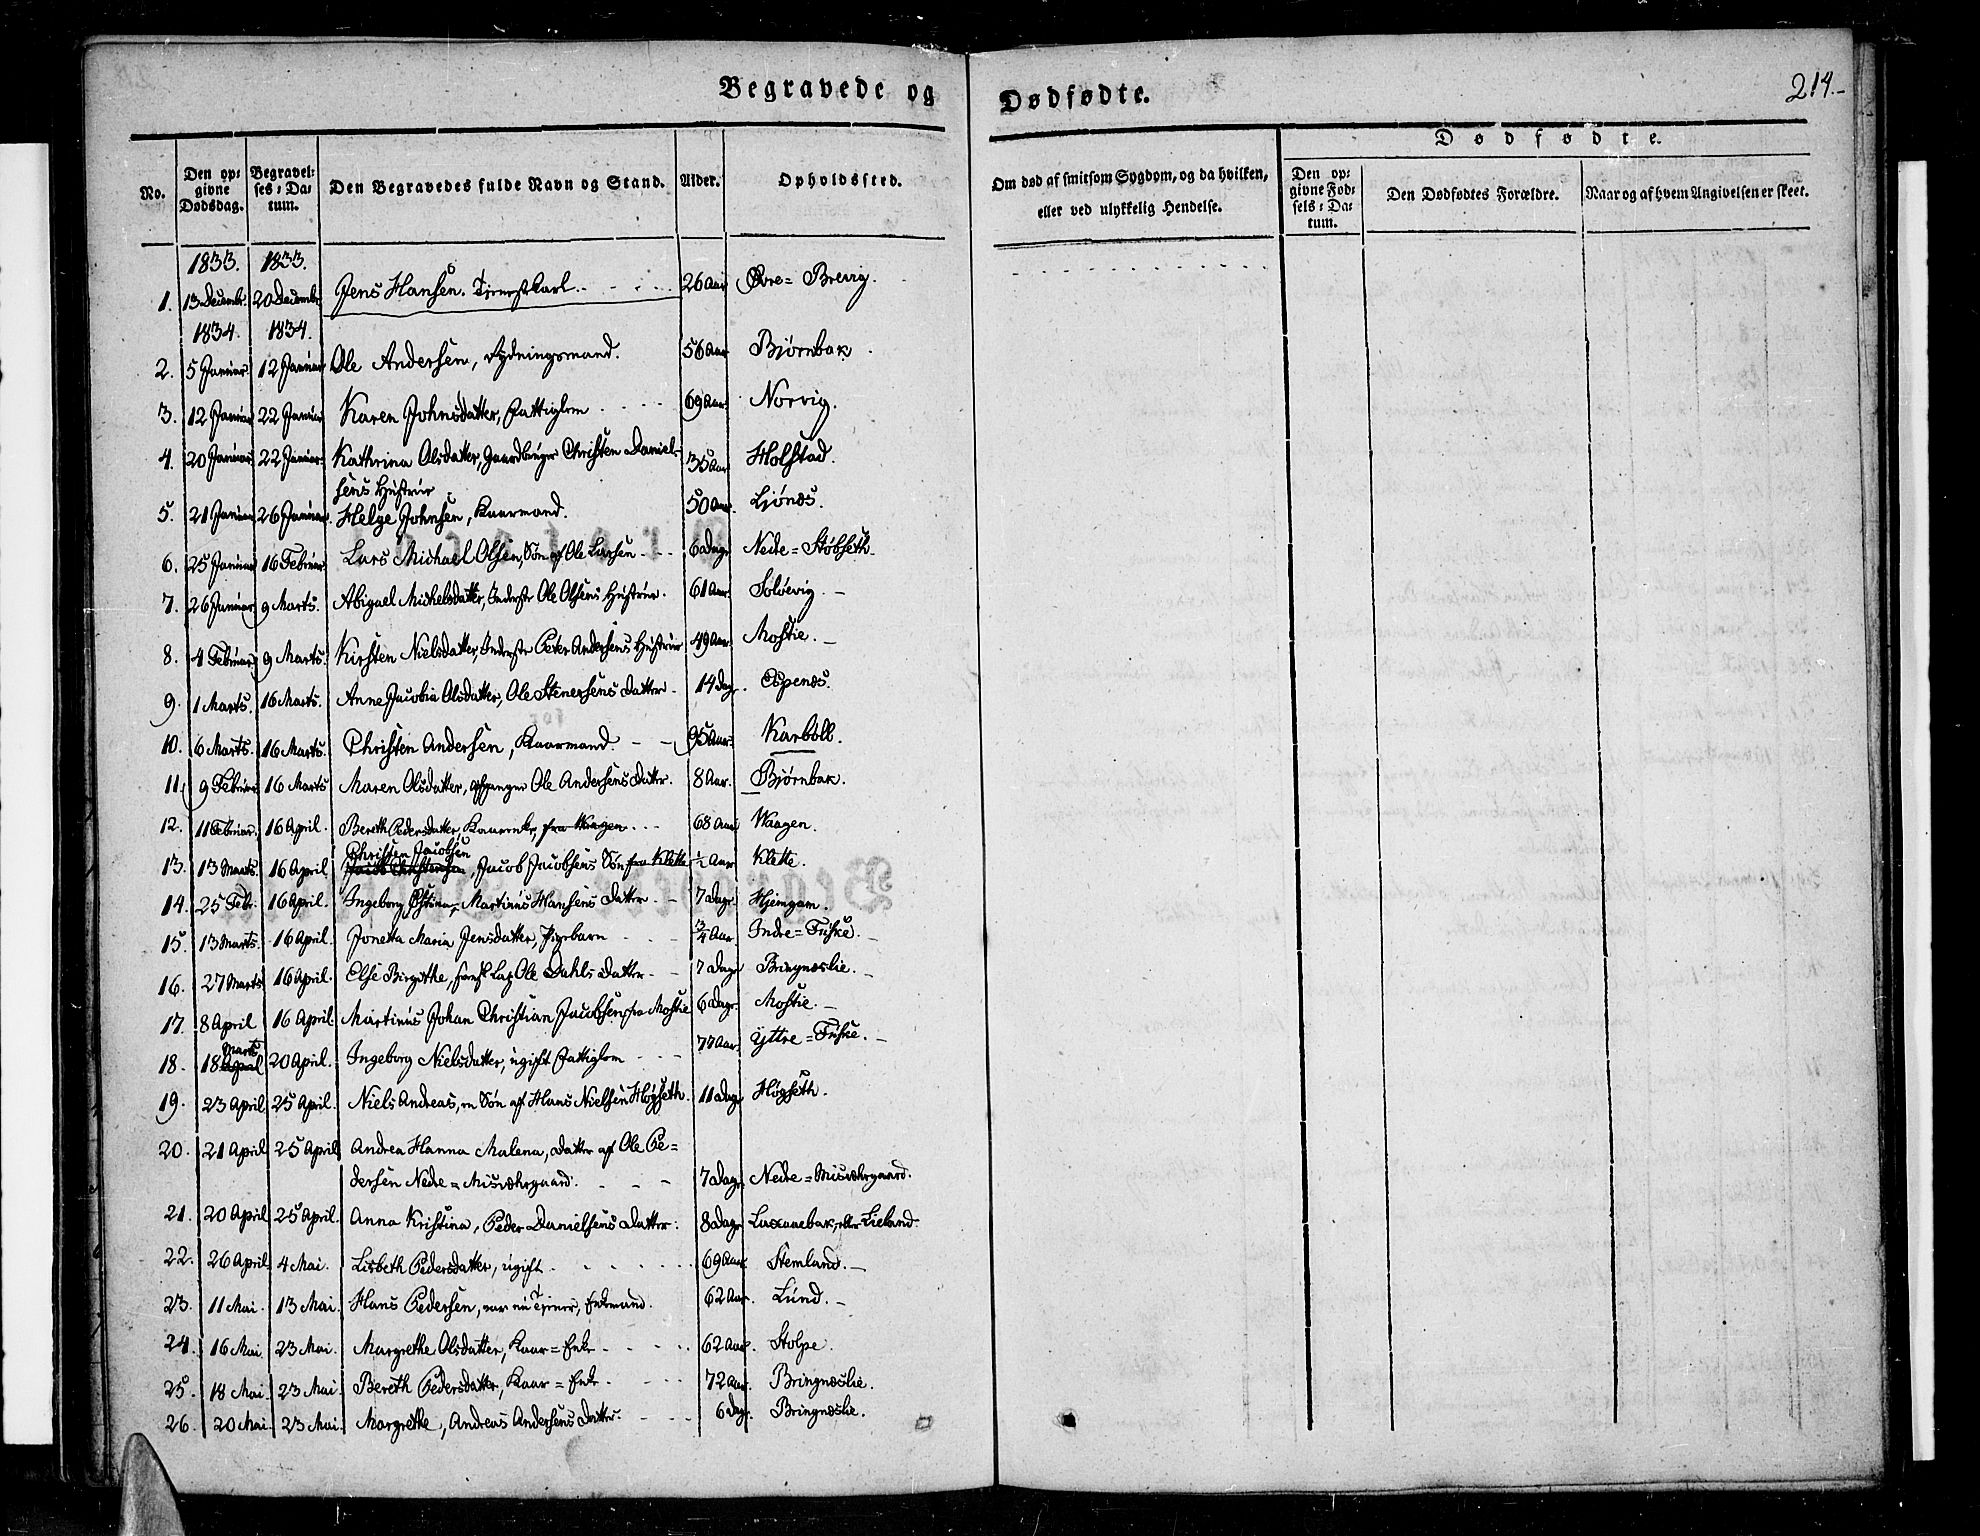 Begravede og
Dødfødte.
214.-
No.
Den op=
givne
Dødsdag.
Begravel=
ses=Da=
tum.
Den Begravedes fulde Navn og Stand.
Alder.
Opholdssted.
Om død af smitsom Sygdom, og da hvilken,
eller ved ulykkelig Hendelse.
Dødfødte.
Den op=
givne Fød=
sels=Da=
tum.
Den Dødfødtes Forældre.
Naar og af hvem Angivelsen er skeet.
1833. 1833.
1. 13 Decembr. 20 Decembr Jens Hansen. Tjenestkarl. 26 Aar Øvre=Brevig.
1834. 1834.
2. 5 Januar. 12 Januar Ole Andersen, Rydningsmand. 56 Aar Bjørnbak.
3. 12 Januar 22 Januar Karen Johnsdatter, Fattiglem 69 Aar. Norvig.
4. 20 Januar. 22 Januar. Kathrina Olsdatter, Gaardbruger Christen Daniel-
sens Hustrue 35 Aar Holstad.
5. 21 Januar 26 Januar. Helge Johnsen, Kaarmand. 50 Aar. Ljønes.
6. 25 Januar 16 Februar. Lars Michael Olsen, Søn af Ole Larsen 6 Dage Nedre=Støbseth.
7. 26 Januar 9 Marts. Abigael Michelsdatter, Inderste Ole Olsens Hustrue. 61 Aar. Soløevig.
8. 4 Februar 9 Marts. Kirsten Nielsdatter, Inderste Peter Andersens Hustrue 49 Aar. Mostie.
9. 1 Marts. 16 Marts. Anne Jacobia Olsdatter, Ole Stenersens Datter 14 Dag. Espenes.
10. 6 Marts. 16 Marts. Christen Andersen, Kaarmand. 95 Aar. Karbøll.
11. 9 Februar 16 Marts Maren Olsdatter, afgangne Ole Andersens Datter. 8 Aar. Bjørnbak.
12. 11 Februar. 16 April. Bereth Pedersdatter, Kaarenke, fra Waagen. 68 Aar Waagen.
Christen Jacobsen
13. 13 Marts. 16 April Jacob Christensen, Jacob Jacobsens Søn fra Klette ½ Aar Klette.
14. 25 Febr. 16 April. Ingeborg Stina, Martinus Hansens Datter 7 Dage. Hjemgam.
15. 13 Marts. 16 April. Jonetta Maria Jensdatter, Pigebarn ¾ Aar. Indre=Fuske.
16. 27 Marts 16 April. Else Birgithe, svensk Lap Ole Dahls Datter 7 Dage Bringneslie.
17. 8 April 16 April. Martinus Johan Christian Jacobsen, fra Mostie 6 Dage. Mostie.
Marts
18. 18 April 20 April. Ingeborg Nielsdatter, ugift Fattiglem 77 Aar. Yttre=Fuske.
19. 23 April 25 April. Niels Andreas, en Søn af Hans Nielsen Høgseth. 11 Dage Høgseth.
20. 21 April 25 April Andrea Hanna Malena, Datter af Ole Pe=
dersen Nedre=Misværgaard. 7 Dage. Nedre=Misværgaard.
21. 20 April 25 April. Anna Kristina, Peder Danielsens Datter. 8 Dage Luxanebak, eller Lieland.
22. 26 April 4 Mai. Lisbeth Pedersdatter, ugift 69 Aar. Stemland.
23. 11 Mai. 13 Mai. Hans Pedersen, var en Tjener, Enkemand. 62 Aar. Lund.
24. 16 Mai. 23 Mai. Margrethe Olsdatter, Kaar=Enke 62 Aar. Stolpe.
25. 18 Mai. 23 Mai. Bereth Pedersdatter, Kaar=Enke. 72 Aar. Bringneslie.
26. 20 Mai 23 Mai. Margrethe, Andreas Andersens Datter. 6 Dage. Bringneslie.